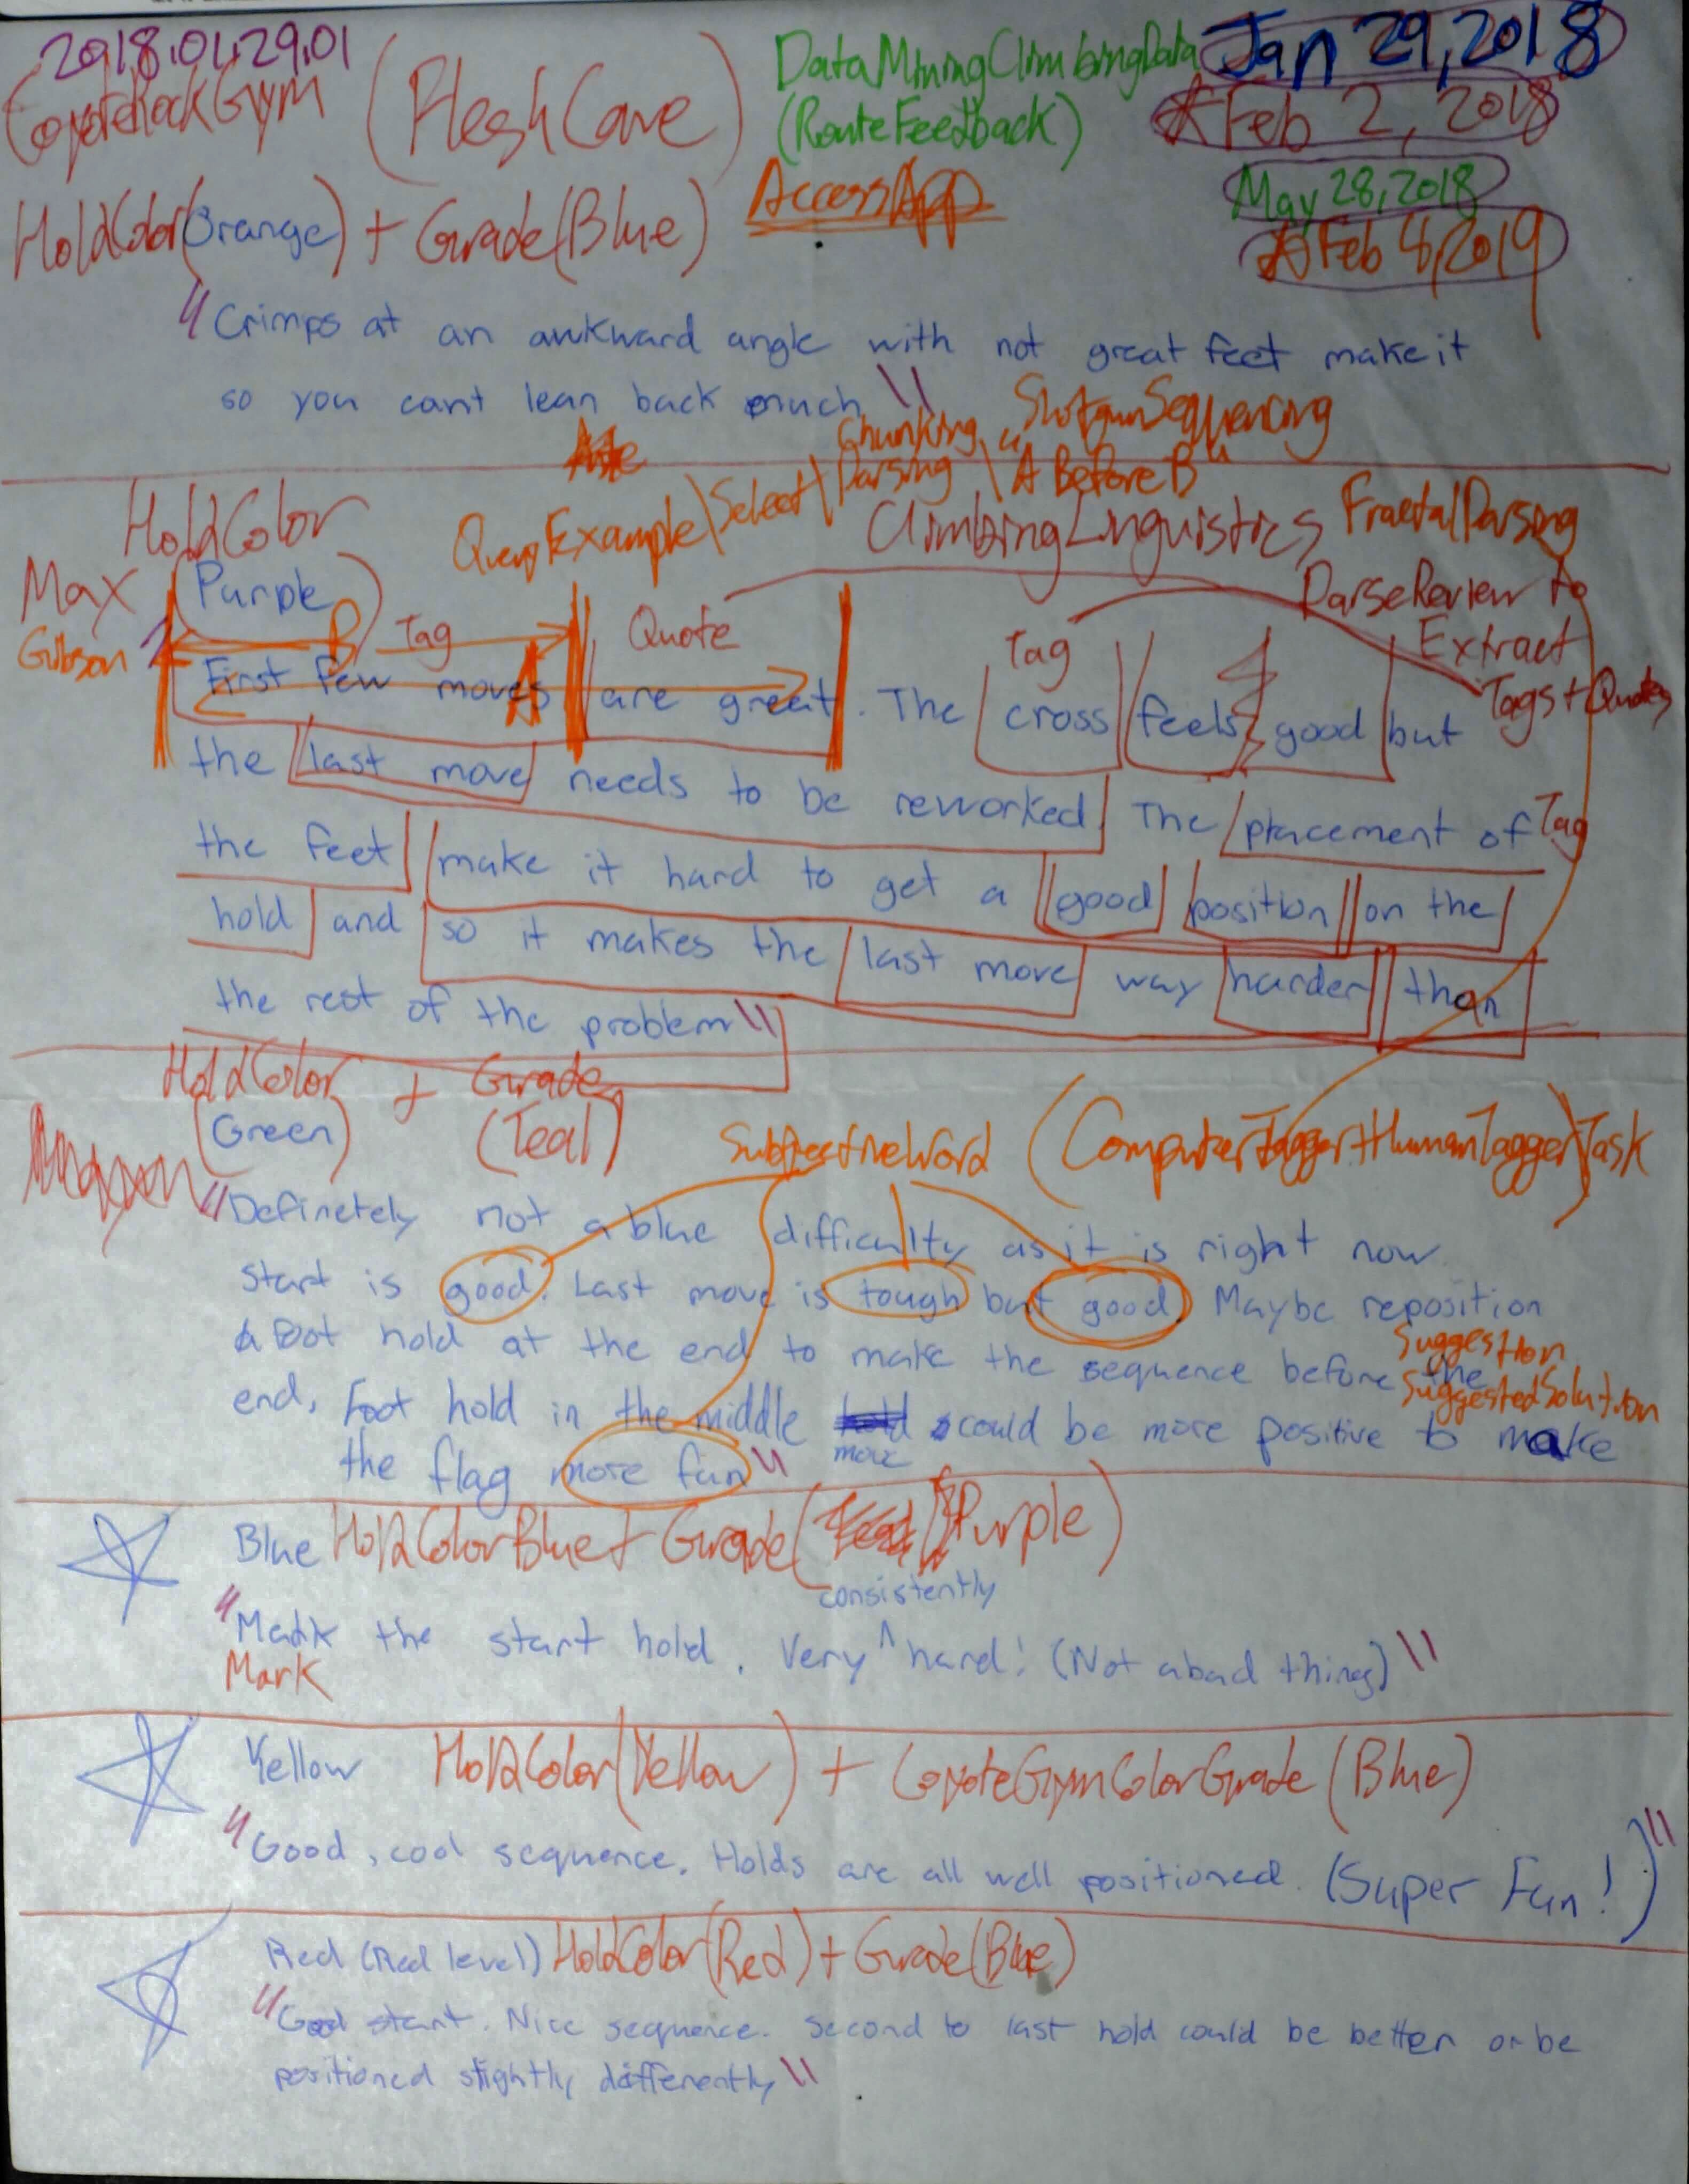 2018.01.29.01
CoyoteRockGym (FleshCave)
DataMiningClimbingData
(RouteFeedback)
Jan 29, 2018
Feb 2, 2018
May 28, 2018
Feb 8, 2019
AccessApp
HoldColor(Orange) + Grade(Blue)
"Crimps at an awkward angle with not great feet make it
so you cant lean back much"
QueryExample\Select\
Chunking
Parsing
\"ShotgunSequencing
"A Before B"
ClimbingLinguistics
FractalParsing
ParseReview to
Extract
Tags + Quotes
HoldColor
(Purple)
Max
Gibson
B Tag
A
Quote
Tag
"First few moves are great. The cross feels good but
the last move needs to be reworked. The placement of
Tag
the feet make it hard to get a good position on the
hold and so it makes the last move way harder than
the rest of the problem"
HoldColor + Grade
(Green) (Teal)
SubjectiveWord
(ComputerTagger+HumanTagger)Task
"Definetely not a blue difficulty as it is right now
start is good. Last move is tough but good. Maybe reposition
a foot hold at the end to make the sequence before the
Suggestion
SuggestedSolution
end, Foot hold in the middle could be more positive to make
move
the flag more fun"
Blue HoldColorBlue + Grade(Purple)
consistently
"Mark the start hold. Very ^ hard! (Not a bad thing)"
Mark
Yellow HoldColor(Yellow) + CoyoteGymColorGrade(Blue)
"Good, cool sequence. Holds are all well positioned. (Super Fun!)"
Red (Red level) HoldColor(Red) + Grade(Blue)
"Good start. Nice sequence. Second to last hold could be better or be
positioned slightly differently"